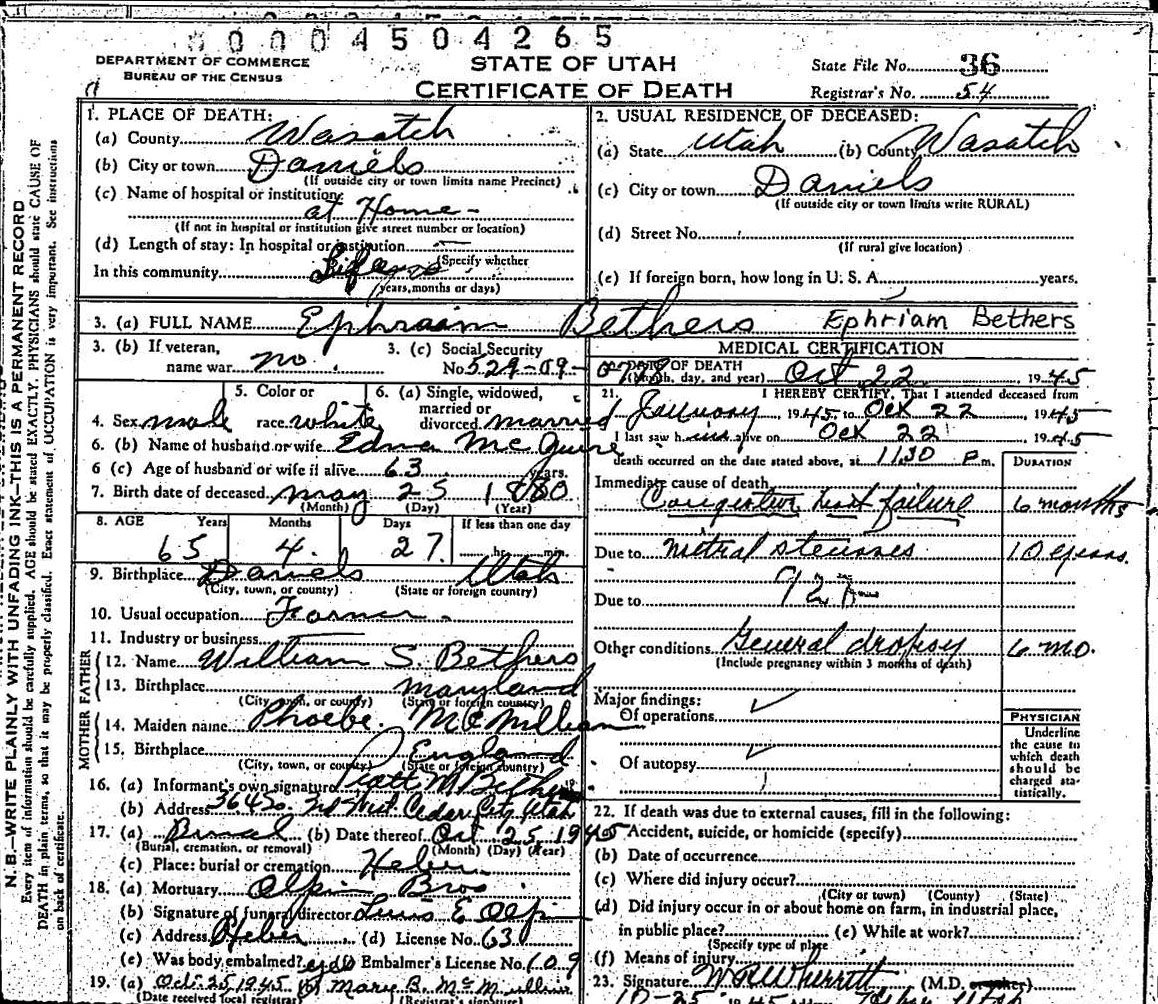 0 0 0 0 4 5 0 4 2 6 5
DEPARTMENT OF COMMERCE
BUREAU OF THE CENSUS
STATE OF UTAH
CERTIFICATE OF DEATH
State File No. 36
Registrar's No. 54
N.B.—WRITE PLAINLY WITH UNFADING INK—THIS IS A PERMANENT RECORD
Every item of information should be carefully supplied. AGE should be stated EXACTLY. PHYSICIANS should state CAUSE OF
DEATH in plain terms, so that it may be properly classified. Exact statement of OCCUPATION is very important. See instructions
on back of certificate.
1. PLACE OF DEATH:
(a) County Wasatch
(b) City or town Daniels
(If outside city or town limits name Precinct)
(c) Name of hospital or institution:
at Home -
(If not in hospital or institution give street number or location)
(d) Length of stay: In hospital or institution —
(Specify whether
In this community
years, months or days)
2. USUAL RESIDENCE OF DECEASED:
(a) State Utah (b) County Wasatch
(c) City or town Daniels
(If outside city or town limits write RURAL)
(d) Street No.
(If rural give location)
(e) If foreign born, how long in U. S. A. years.
3. (a) FULL NAME Ephraim Bethers Ephriam Bethers
3. (b) If veteran, name war no
3. (c) Social Security No. 529-09-
4. Sex male
5. Color or race white
6. (a) Single, widowed, married or divorced married
6. (b) Name of husband or wife Edna McGuire
6 (c) Age of husband or wife if alive 63 years.
7. Birth date of deceased may 25 1880
(Month) (Day) (Year)
8. AGE Years Months Days If less than one day
65 4 27 hr. min.
9. Birthplace Daniels Utah
(City, town, or county) (State or foreign country)
10. Usual occupation Farmer
11. Industry or business
FATHER
12. Name William S. Bethers
13. Birthplace maryland
(City, town, or county) (State or foreign country)
MOTHER
14. Maiden name Phoebe McMillian
15. Birthplace England
(City, town, or county) (State or foreign country)
16. (a) Informant's own signature M Bethers
(b) Address Cedar City, Utah
17. (a) Burial (b) Date thereof Oct 25 1945
(Burial, cremation, or removal) (Month) (Day) (Year)
(c) Place: burial or cremation Heber
18. (a) Mortuary Olpin Bros
(b) Signature of funeral director E Olpin
(c) Address Heber (d) License No. 630
(e) Was body embalmed? yes Embalmer's License No. 109
19. (a) Oct. 25, 1945 (b) Mary B. McMullin
(Date received local registrar) (Registrar's signature)
MEDICAL CERTIFICATION
20. DATE OF DEATH
(Month, day, and year) Oct 22 1945
21. I HEREBY CERTIFY, That I attended deceased from
January, 1945 to Oct 22, 1945
I last saw him alive on Oct 22, 1945
death occurred on the date stated above, at 1130 P m.
DURATION
Immediate cause of death
Congestive heart failure 6 months
Due to mitral stenoses 10 years.
Due to
Other conditions General dropsy 6 mo.
(Include pregnancy within 3 months of death)
Major findings:
Of operations
Of autopsy
PHYSICIAN
Underline
the cause to
which death
should be
charged sta-
tistically.
22. If death was due to external causes, fill in the following:
(a) Accident, suicide, or homicide (specify)
(b) Date of occurrence
(c) Where did injury occur?
(City or town) (County) (State)
(d) Did injury occur in or about home on farm, in industrial place,
in public place? (e) While at work?
(Specify type of place
(f) Means of injury
23. Signature W R Wherritt (M.D.
10-25 1945 Utah